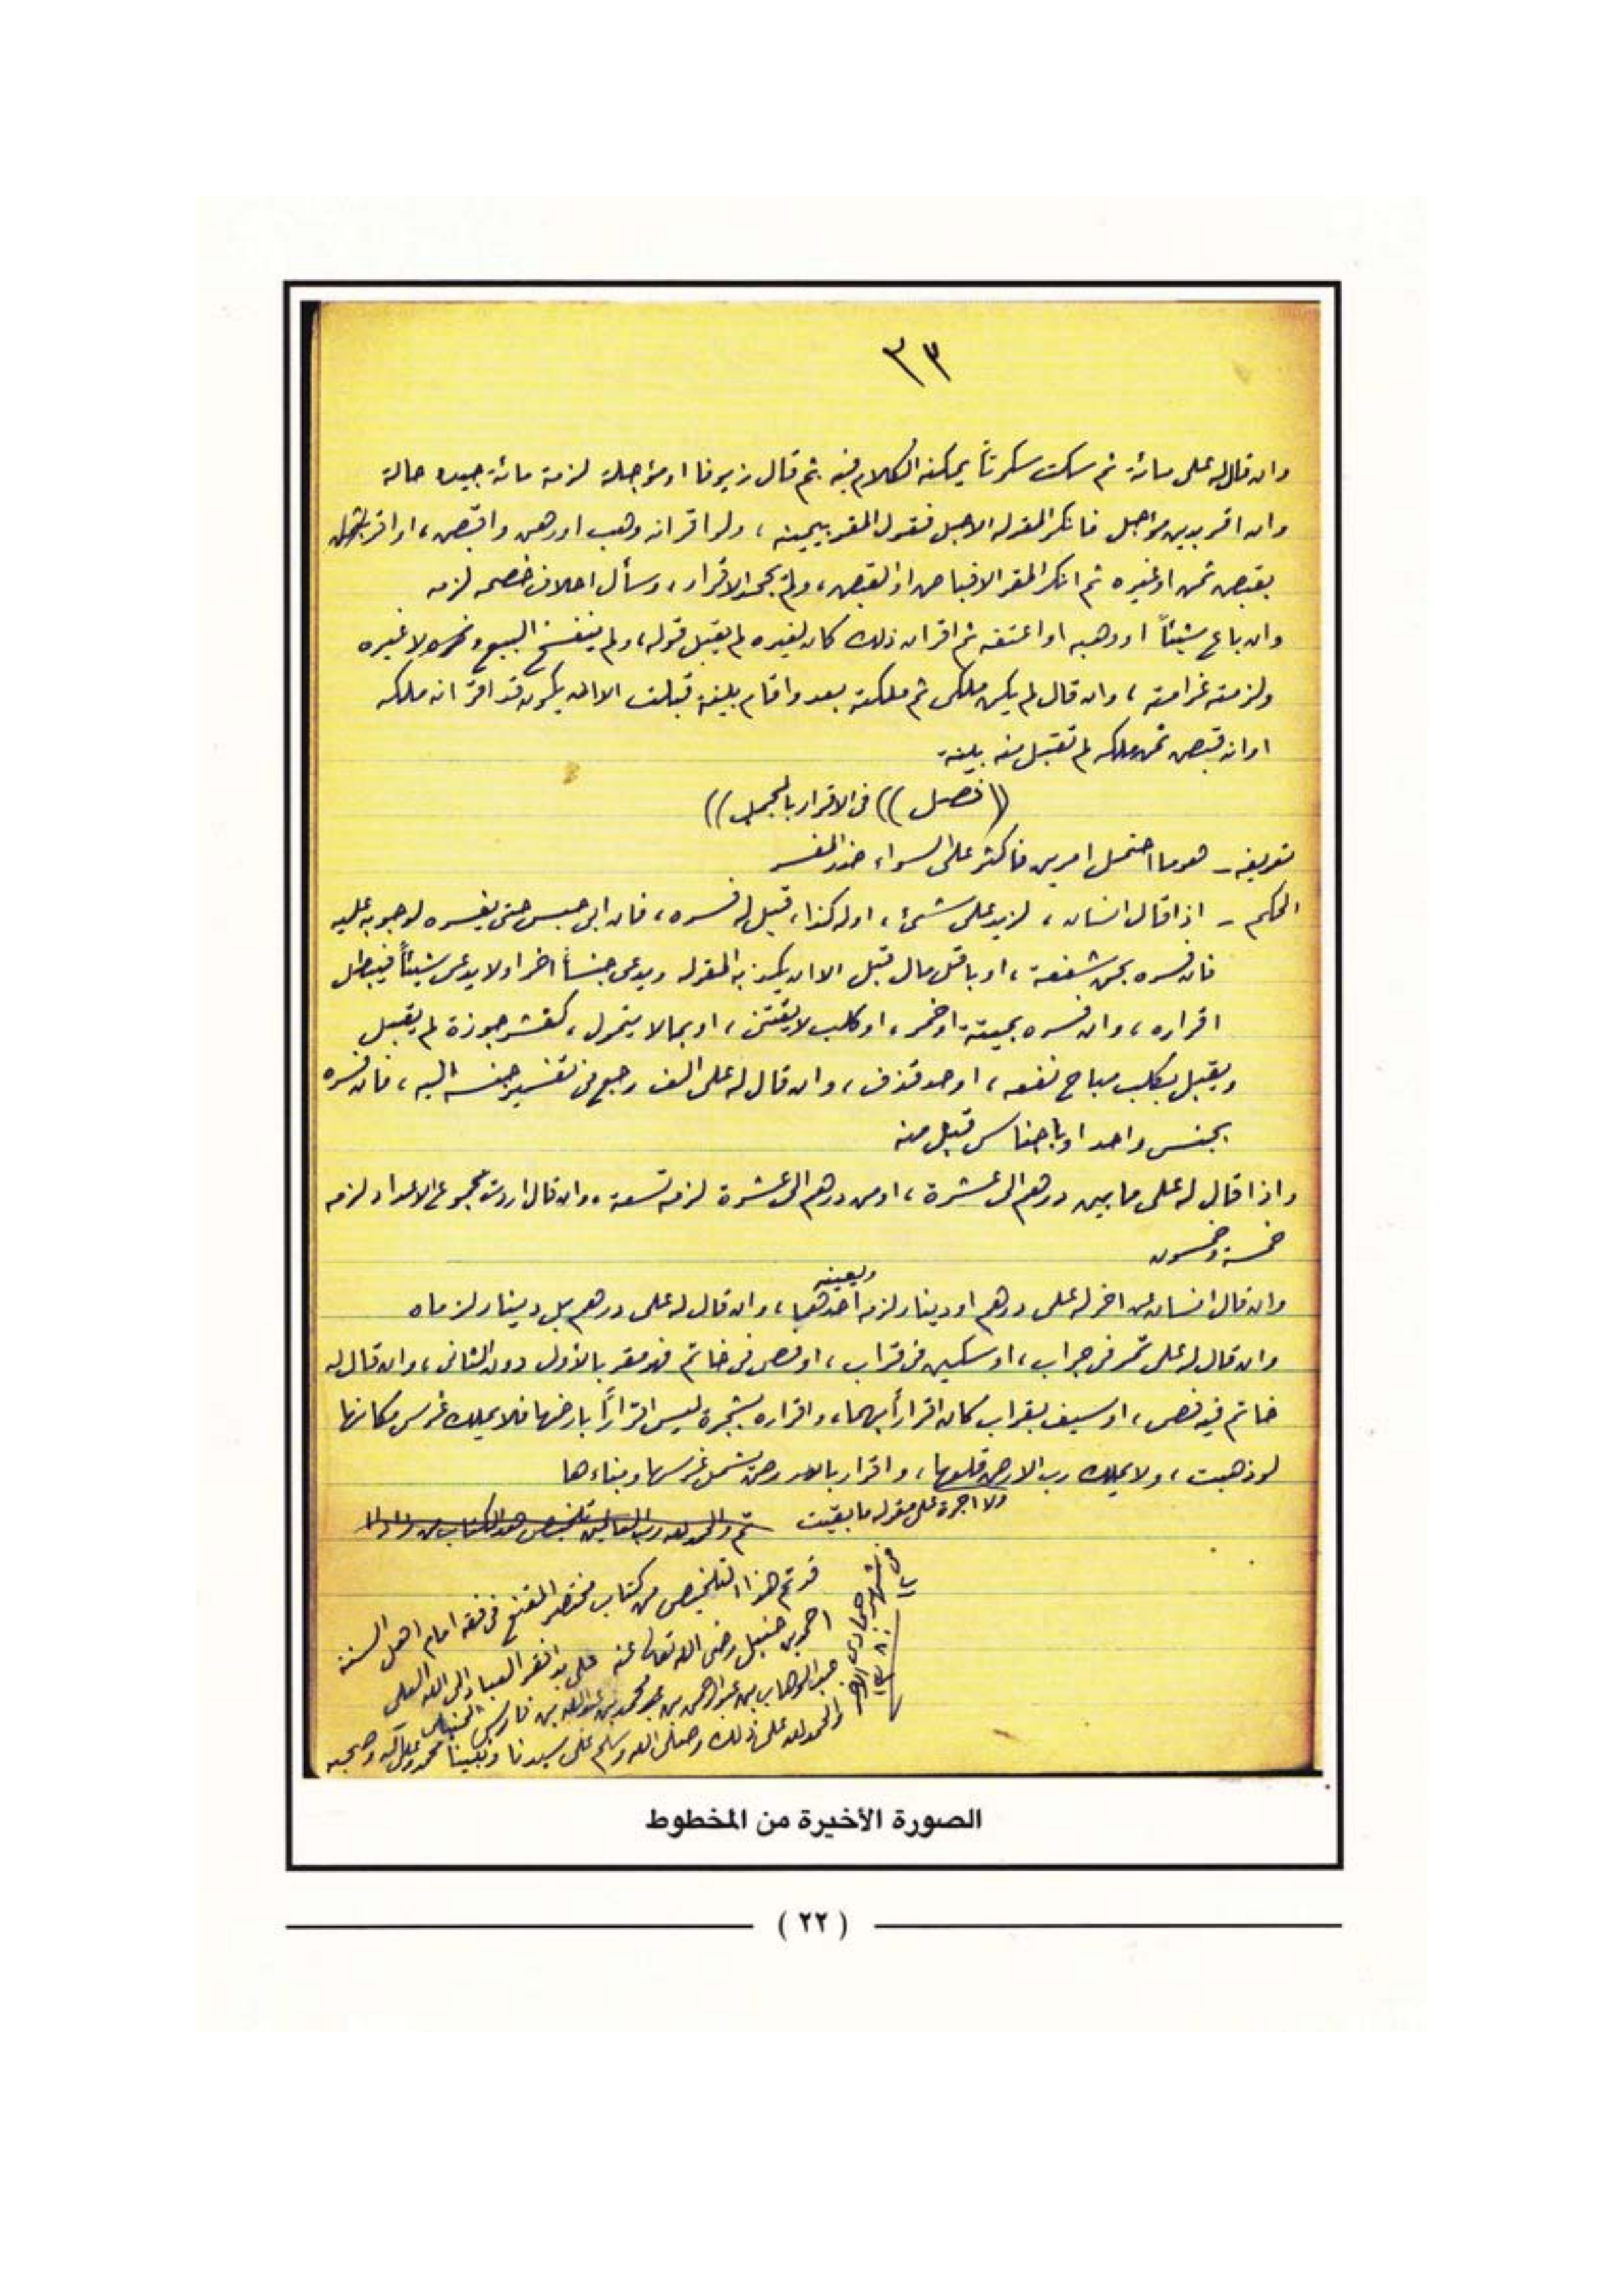 ٣٣
وان قال له على مائة ثم سكت سكوتاً يمكنه الكلام فيه ثم قال زيوفا او مؤجلة لزمة مائة جيده حالة
وان اقر بدين مؤجل فانكر المقر له الاجل فقول المقر بيمينه ، ولو اقر انه وهب او رهن واقبض ، او اقر
بقبض ثمن او غيره ثم انكر المقر الاقباض او القبض ، ولم يجحد الاقرار ، وسأل احلاف خصمه لزمه
وان باع شيئاً او وهبه او اعتقه ثم اقر ان ذلك كان لغيره لم يقبل قوله ، ولم ينفسخ البيع ونحوه ولا غيره
ولزمته غرامته ، وان قال لم يكن ملكي ثم ملكته بعد واقام بينة قبلت الا ان يكون قد اقر انه ملكه
او انه قبض ثمن ملكه لم تقبل منه بينة
(( فصل )) في الاقرار بالمجمل ))
تعريفه - هو ما احتمل امرين فاكثر على السواء ضد المفسر
الحكم - اذا قال انسان ، لزيد على شيء ، او له كذا ، قيل له فسره ، فان ابى حبس حتى يفسره لوجوبه عليه
فان فسره بحق شفعة ، او باقل مال قبل الا ان يكذبه المقر له ويدعى جنساً اخر او لا يدعى شيئاً فيبطل
اقراره ، وان فسره بميتة او خمر ، او كلب لا يقتنى ، او بما لا يتمول ، كقشر جوزة لم يقبل
ويقبل بكلب مباح نفعه ، او حد قذف ، وان قال له على الف رجع في تفسير جنسه اليه ، فان فسره
بجنس واحد او باجناس قبل منه
واذا قال له على ما بين درهم الى عشرة ، او من درهم الى عشرة لزمه تسعة ، وان قال اردت مجموع الاعداد لزمه
خمسة وخمسون
وان قال انسان عن اخر له على درهم او دينار لزمه احدهما ويعينه ، وان قال له على درهم بل دينار لزماه
وان قال له على تمر في جراب ، او سكين في قراب ، او فص في خاتم فهو مقر بالاول دون الثاني ، وان قال له
خاتم فيه فص ، او سيف بقراب كان اقراراً بهما ، واقراره بشجرة ليس اقراراً بارضها فلا يملك غرس مكانها
لو ذهبت ، ولا يملك رب الارض قلعها ، واقرار بالارض يشمل غرسها وبناءها
ولا اجرة على مقر له ما بقيت
تم والحمد لله رب العالمين تلخيص هذا الكتاب من
قد تم هذا التلخيص من كتاب مختصر المقنع في فقه امام اهل السنة
احمد بن حنبل رضى الله تعالى عنه على يد افقر العباد الى الله العلى
عبد الوهاب بن عبد الرحمن بن محمد بن عبد الله بن فارس الحنبلى
والحمد لله على ذلك وصلى الله وسلم على سيدنا ونبينا محمد وعلى آله وصحبه
في شهر جمادى الاخر
الصورة الأخيرة من المخطوط
( ٢٢ )